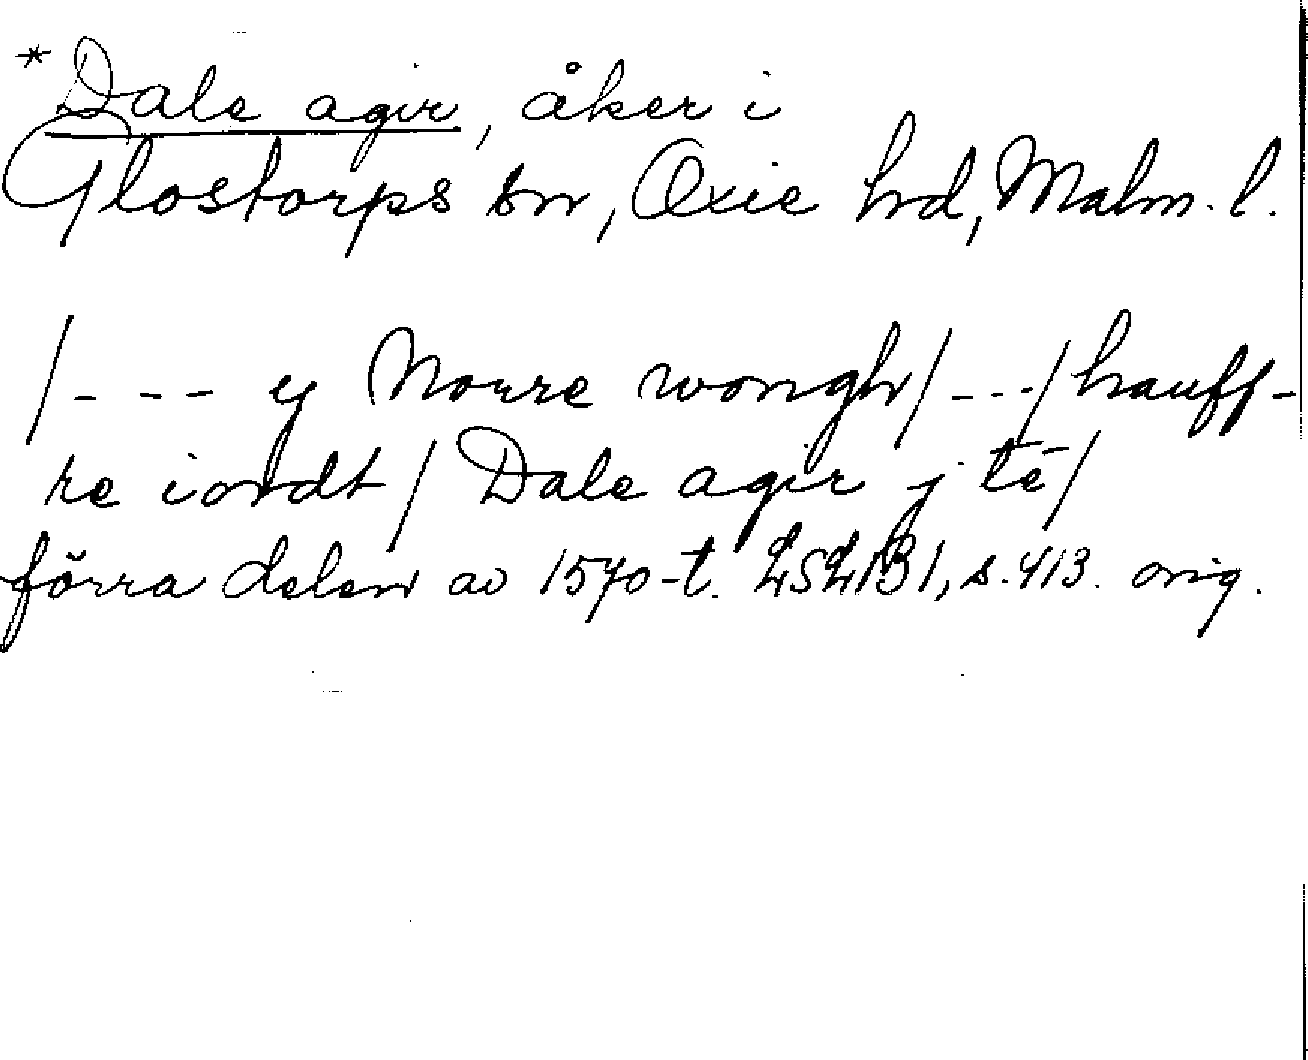 *Dale agir, åker i
Glostorps sn, Oxie hrd, Malm. l.
/--- y Norre wongh/---/hauff-
re iordt/ Dale agir j tē/
förra delen av 1570-t. LSLB1, s. 413. orig.